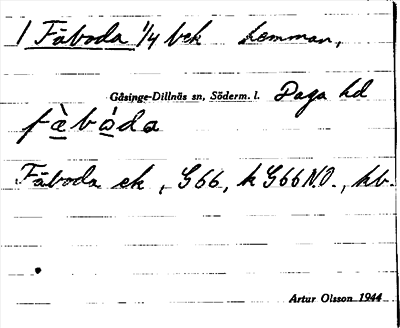 1 Fäboda 1/4 bek hemman,
Gåsinge-Dillnäs sn, Söderm. l. Daga hd
fä̀bo̍da
Fäboda ek, G66, k G66 N.O., hb.
Artur Olsson 1944